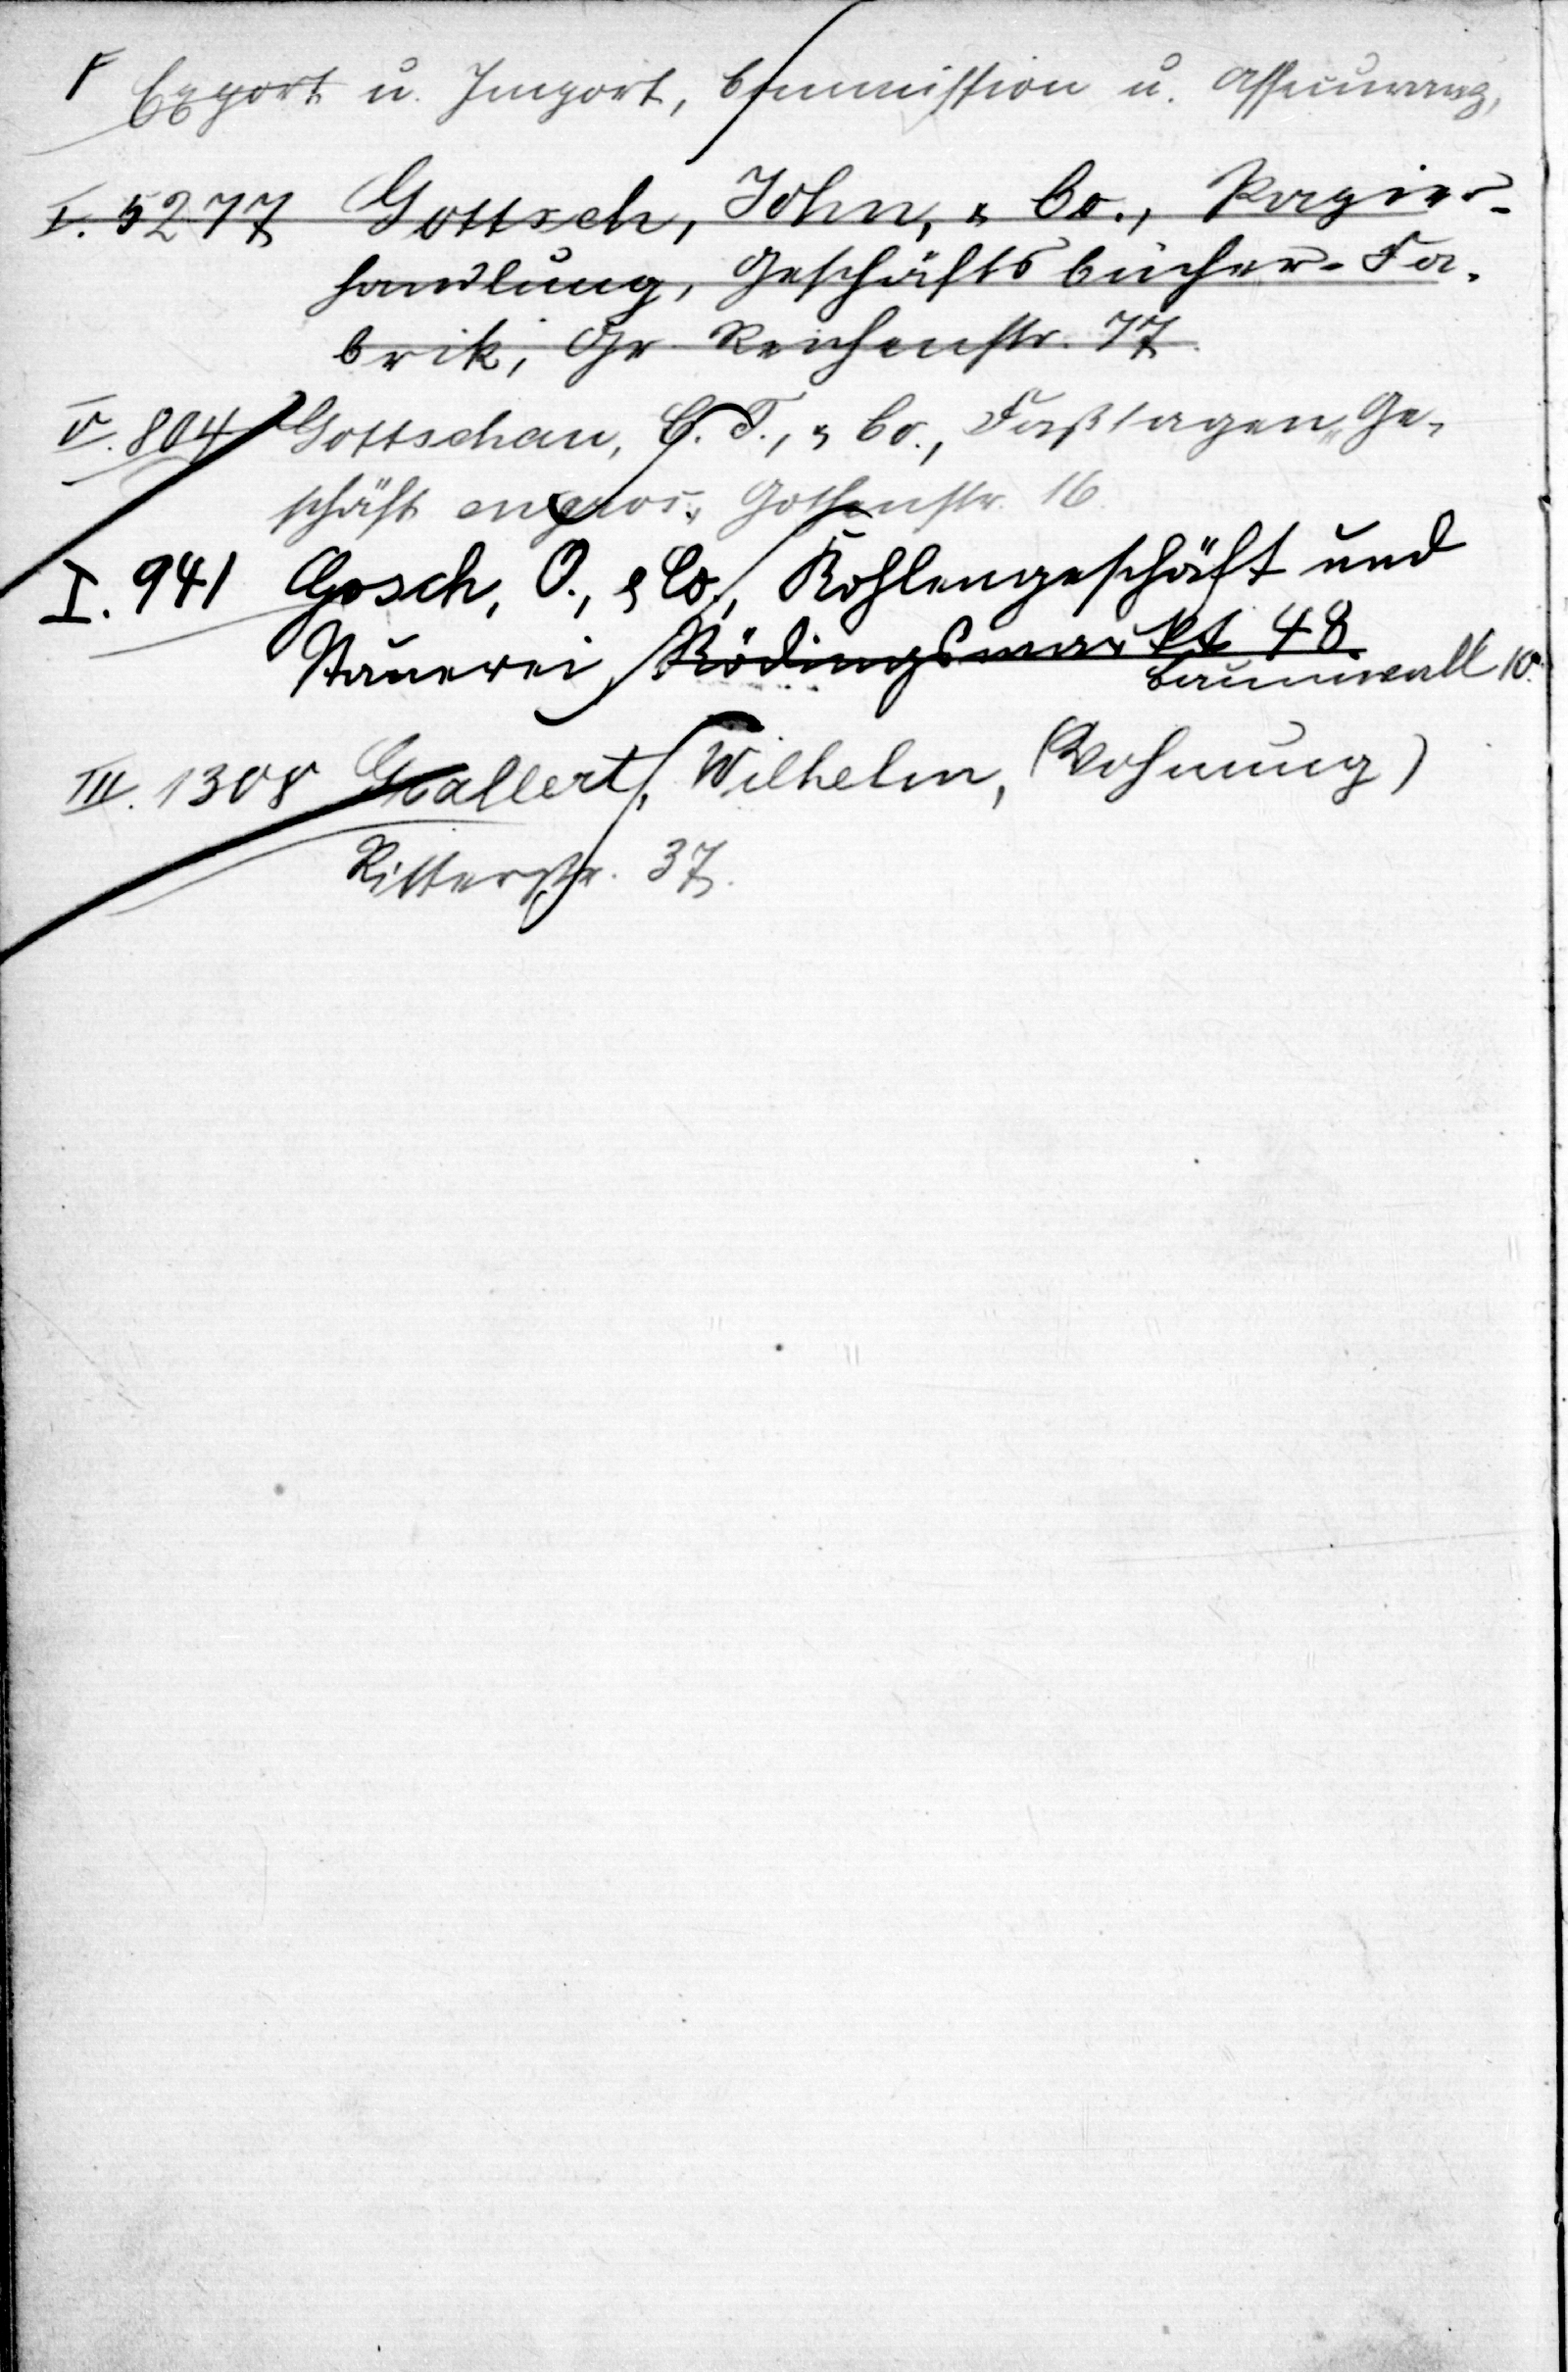 Γ Export u. Import, Commission u. Assecuranz,
I. 5277 Gottsch, John, & Co., Papier-
handlung, Geschäftsbücher-Fa-
brik, Gr. Reichenstr. 77.
V. 804 Gottschau, C. T., & Co., Faßtagen-Ge-
schäft engros, Gothenstr. 16.
I. 941 Gosch, O., & Co., Kohlengeschäft und
Stauerei, Rödingsmarkt 48.
Baumwall 10.
III. 1308 Gallert, Wilhelm, (Wohnung)
Ritterstr. 37.